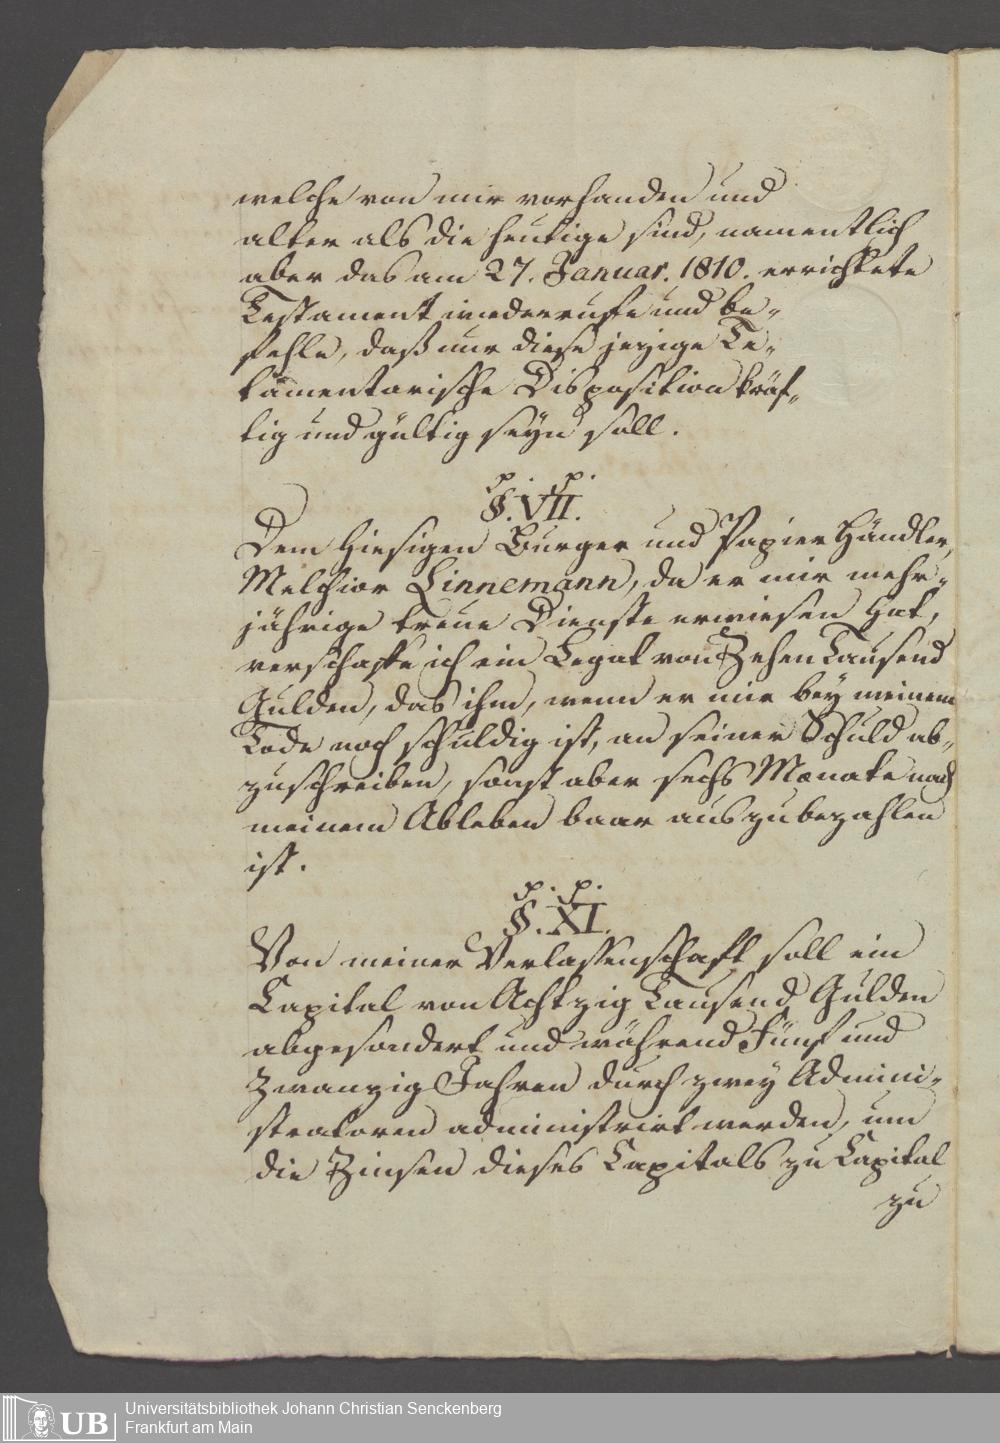 welche von mir vorhanden und
älter als die heutige sind, namentlich
aber das am 27. Januar. 1810. errichtete
Testament wiederrufe und be-
fehle, daß nur diese jezige Te-
tamentarische Disposition kräf-
tig und gültig seyn soll.
p. p.
§. VII.
Dem hiesigen Burger und Papier Händler,
Melchior Linnemann, da er mir mehr-
jährige treue Dienste erwiesen hat,
verschaffe ich ein Legat von Zehen Tausend
Gulden, das ihm, wenn er mir bey meinem
Tode noch schuldig ist, an seiner Schuld ab-
zuschreiben, sonst aber sechs Monate nach
meinem Ableben baar auszubezahlen
ist.
p. p.
§. XI.
Von meiner Verlassenschaft soll ein
Capital von Achtzig Tausend Gulden
abgesondert und während Fünf und
Zwanzig Jahren durch zwey Admini-
stratoren administrirt werden, um
die Zinsen dieses Capitals zu Capital
zu
UB
Universitätsbibliothek Johann Christian Senckenberg
Frankfurt am Main